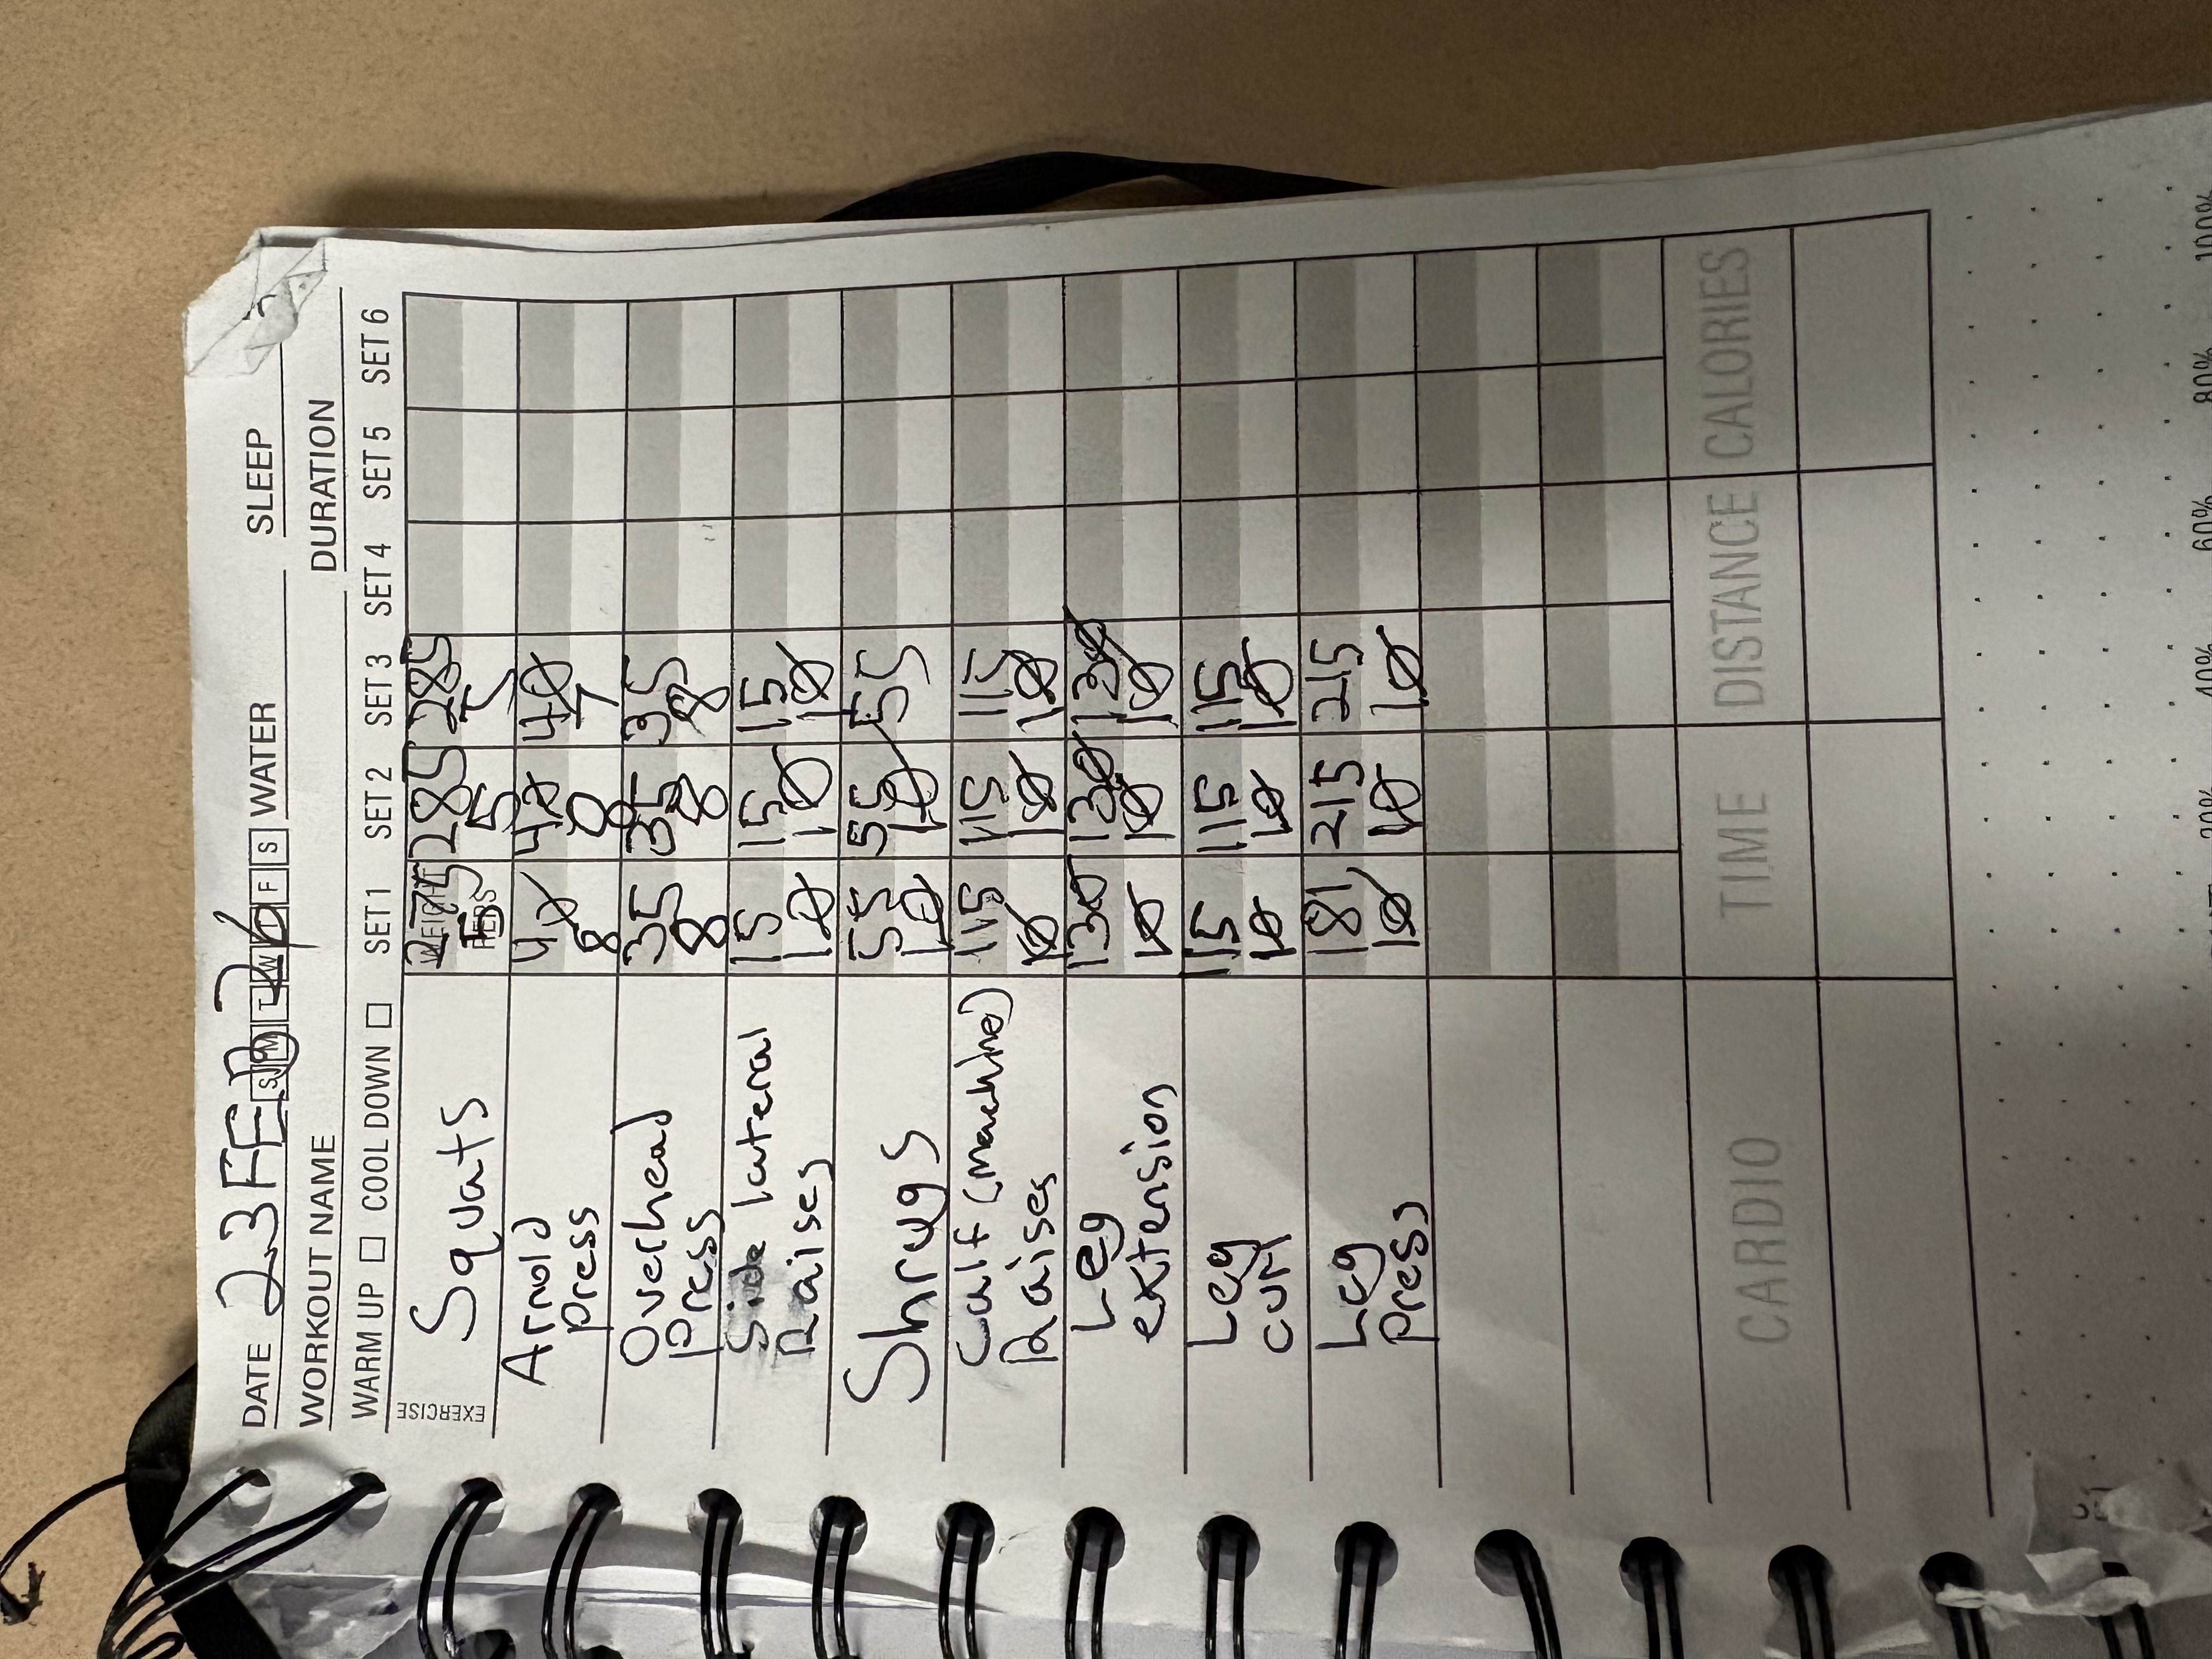 DATE 23 FEB 26 S M T W T F S WATER SLEEP
WORKOUT NAME DURATION
WARM UP COOL DOWN SET 1 SET 2 SET 3 SET 4 SET 5 SET 6
EXERCISE
Squats WEIGHT 275 285 285
REPS 5 5 5
Arnold 40 40 40
Press 8 8 7
Overhead 35 35 35
Press 8 8 8
Side lateral 15 15 15
Raises 10 10 10
Shrugs 55 55 55
10 10 10
Calf (machine) 115 115 115
Raises 10 10 10
Leg 130 130 130
extension 10 10 10
Leg 115 115 115
curl 10 10 10
Leg 181 215 215
Press 10 10 10
CARDIO TIME DISTANCE CALORIES
20% 40% 60% 80% 100%